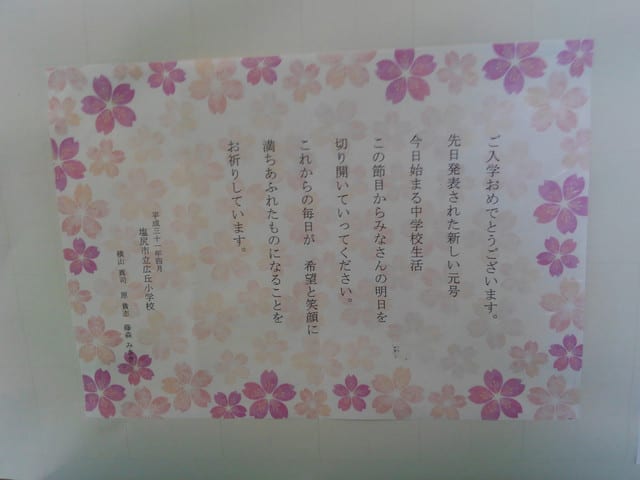 ご入学おめでとうございます。
先日発表された新しい元号
今日始まる中学校生活
この節目からみなさんの明日を
切り開いていってください。
これからの毎日が　希望と笑顔に
満ちあふれたものになることを
お祈りしています。
平成三十一年四月
塩尻市立広丘小学校
横山　真司　原　貴志　藤森　み